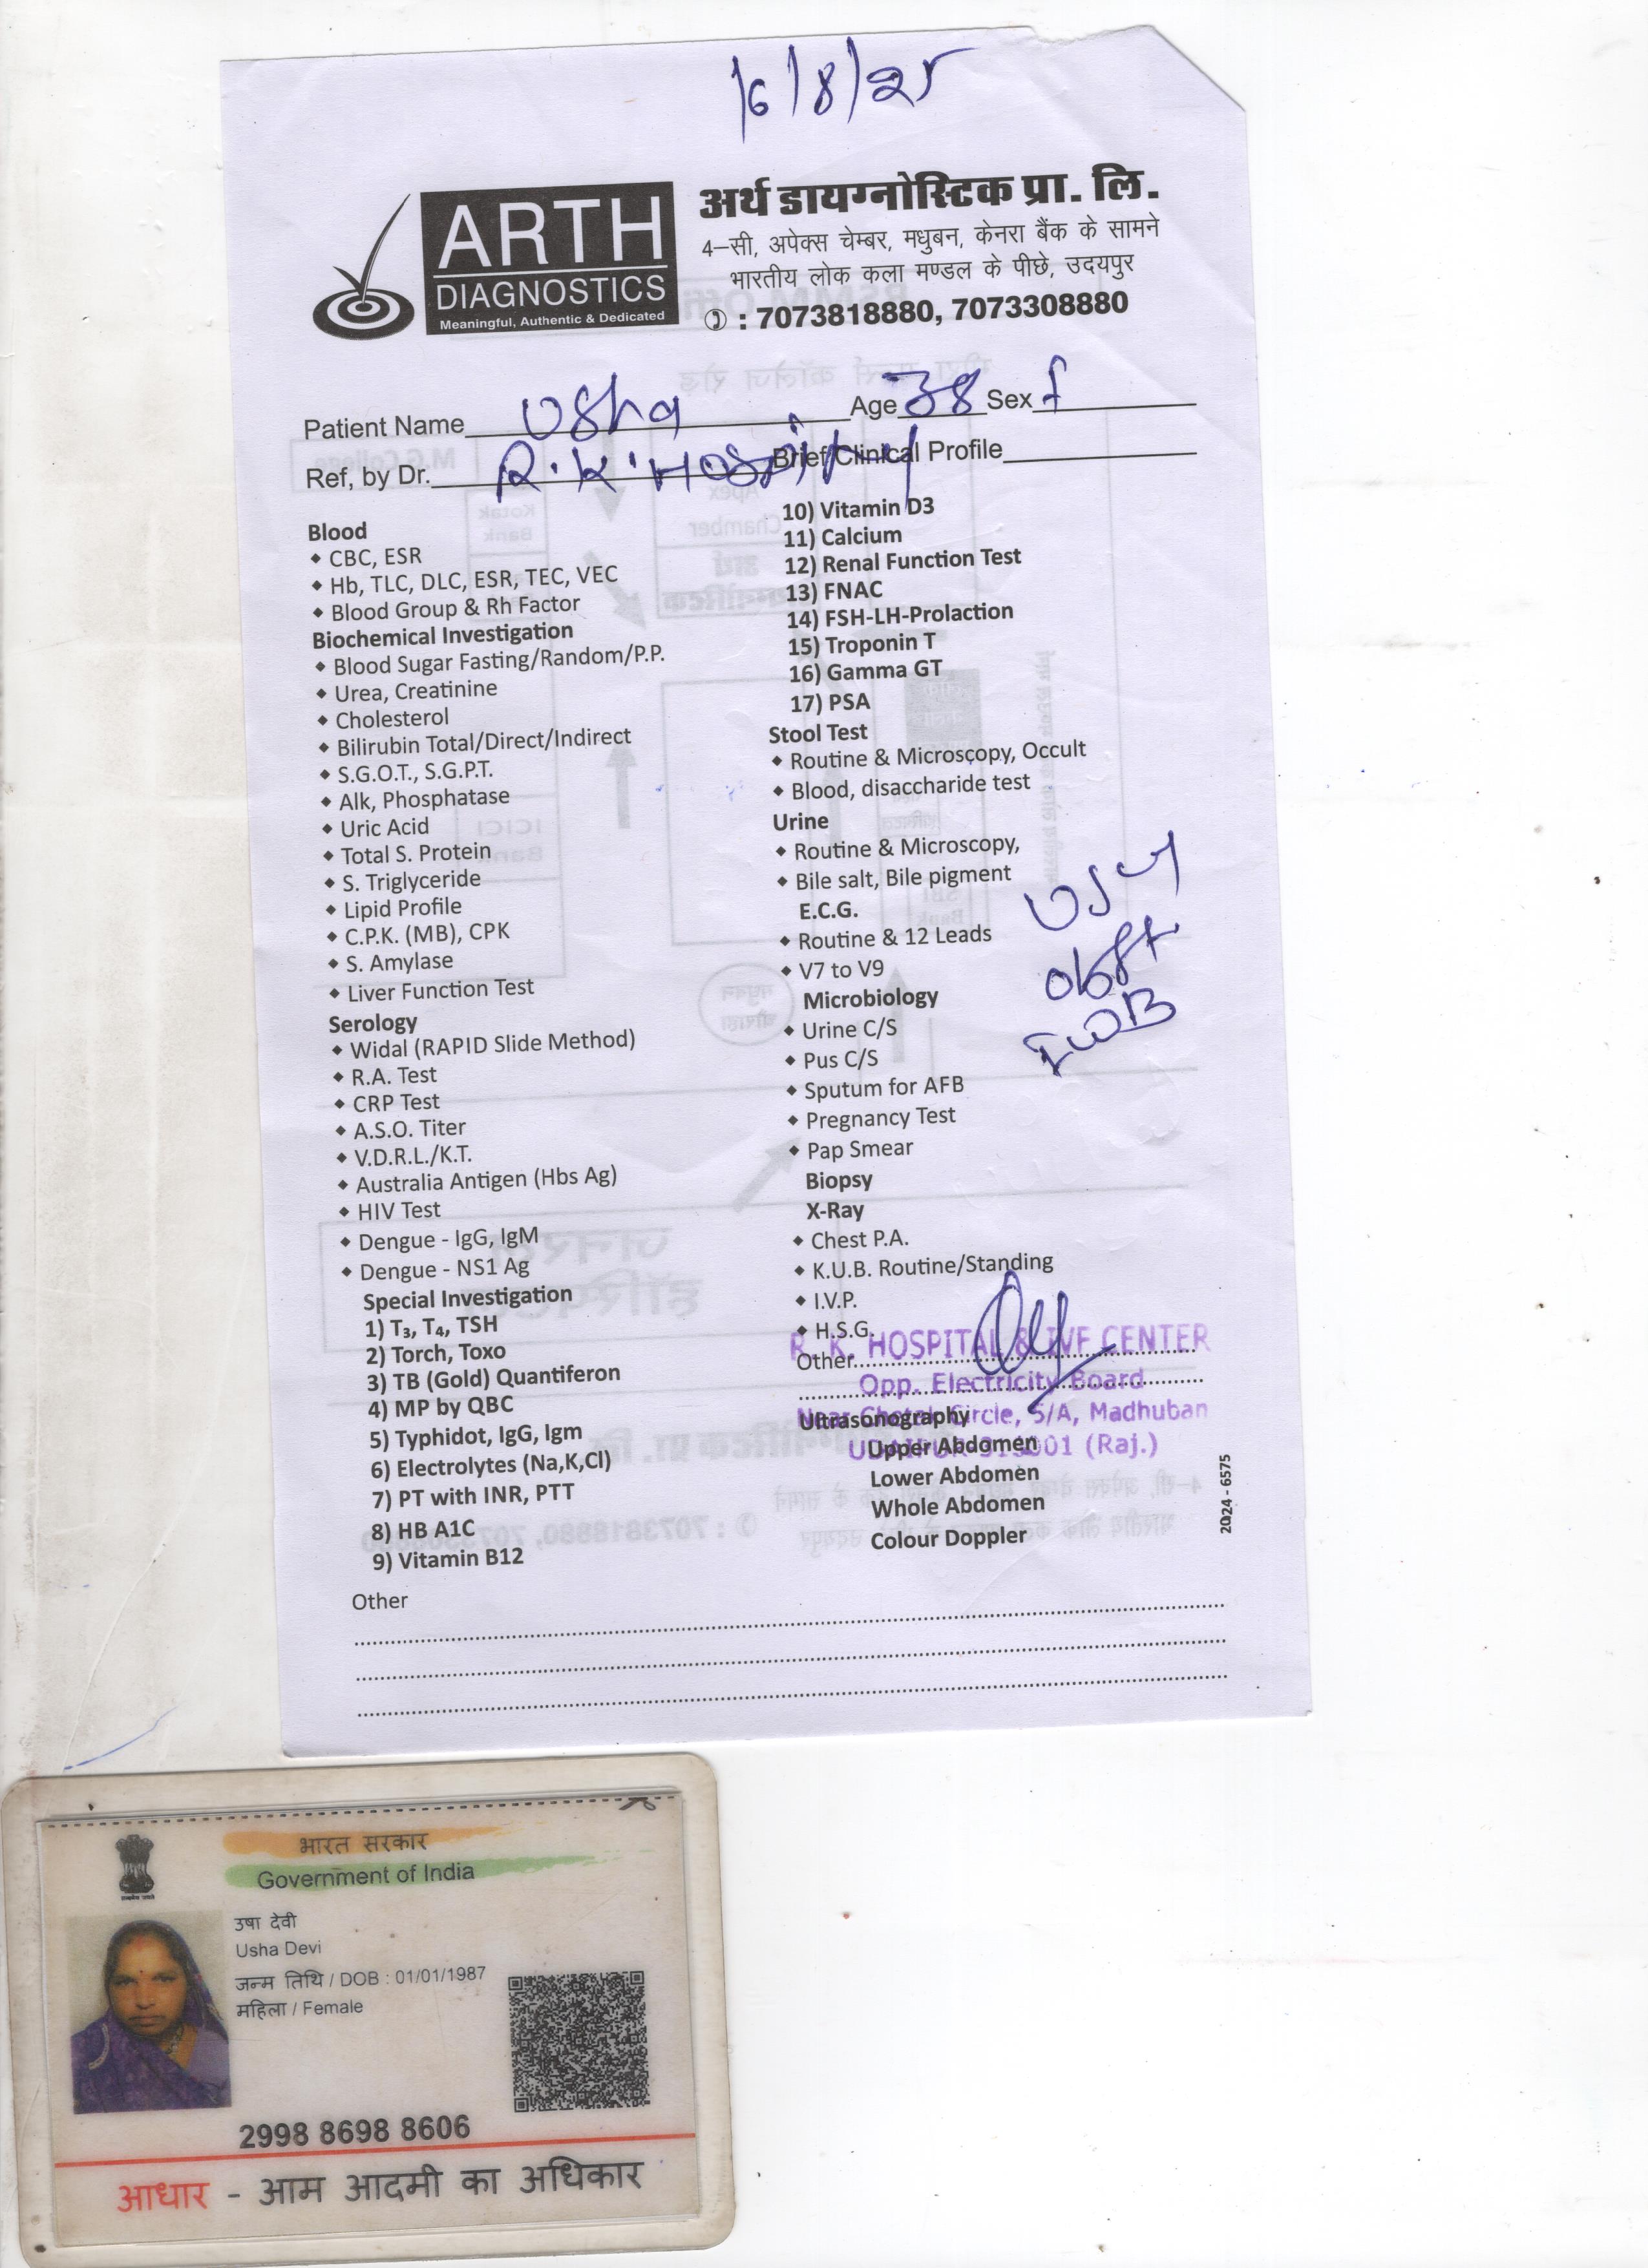 16/8/25
ARTH
DIAGNOSTICS
Meaningful, Authentic & Dedicated
अर्थ डायग्नोस्टिक प्रा. लि.
4–सी, अपेक्स चेम्बर, मधुबन, केनरा बैंक के सामने
भारतीय लोक कला मण्डल के पीछे, उदयपुर
: 7073818880, 7073308880
Patient Name Usha Age 38 Sex f
Ref, by Dr. R.K. Hospital Brief Clinical Profile
Blood
• CBC, ESR
• Hb, TLC, DLC, ESR, TEC, VEC
• Blood Group & Rh Factor
Biochemical Investigation
• Blood Sugar Fasting/Random/P.P.
• Urea, Creatinine
• Cholesterol
• Bilirubin Total/Direct/Indirect
• S.G.O.T., S.G.P.T.
• Alk, Phosphatase
• Uric Acid
• Total S. Protein
• S. Triglyceride
• Lipid Profile
• C.P.K. (MB), CPK
• S. Amylase
• Liver Function Test
Serology
• Widal (RAPID Slide Method)
• R.A. Test
• CRP Test
• A.S.O. Titer
• V.D.R.L./K.T.
• Australia Antigen (Hbs Ag)
• HIV Test
• Dengue - IgG, IgM
• Dengue - NS1 Ag
Special Investigation
1) T₃, T₄, TSH
2) Torch, Toxo
3) TB (Gold) Quantiferon
4) MP by QBC
5) Typhidot, IgG, Igm
6) Electrolytes (Na,K,Cl)
7) PT with INR, PTT
8) HB A1C
9) Vitamin B12
10) Vitamin D3
11) Calcium
12) Renal Function Test
13) FNAC
14) FSH-LH-Prolaction
15) Troponin T
16) Gamma GT
17) PSA
Stool Test
• Routine & Microscopy, Occult
• Blood, disaccharide test
Urine
• Routine & Microscopy,
• Bile salt, Bile pigment
E.C.G.
• Routine & 12 Leads
• V7 to V9
Microbiology
• Urine C/S
• Pus C/S
• Sputum for AFB
• Pregnancy Test
• Pap Smear
Biopsy
X-Ray
• Chest P.A.
• K.U.B. Routine/Standing
• I.V.P.
• H.S.G.
Other
Ultrasonography
Upper Abdomen
Lower Abdomen
Whole Abdomen
Colour Doppler
R. K. HOSPITAL & IVF CENTER
Opp. Electricity Board
Near Chetak Circle, 5/A, Madhuban
UDAIPUR-313001 (Raj.)
2024 - 6575
Other
भारत सरकार
Government of India
उषा देवी
Usha Devi
जन्म तिथि / DOB : 01/01/1987
महिला / Female
2998 8698 8606
आधार - आम आदमी का अधिकार